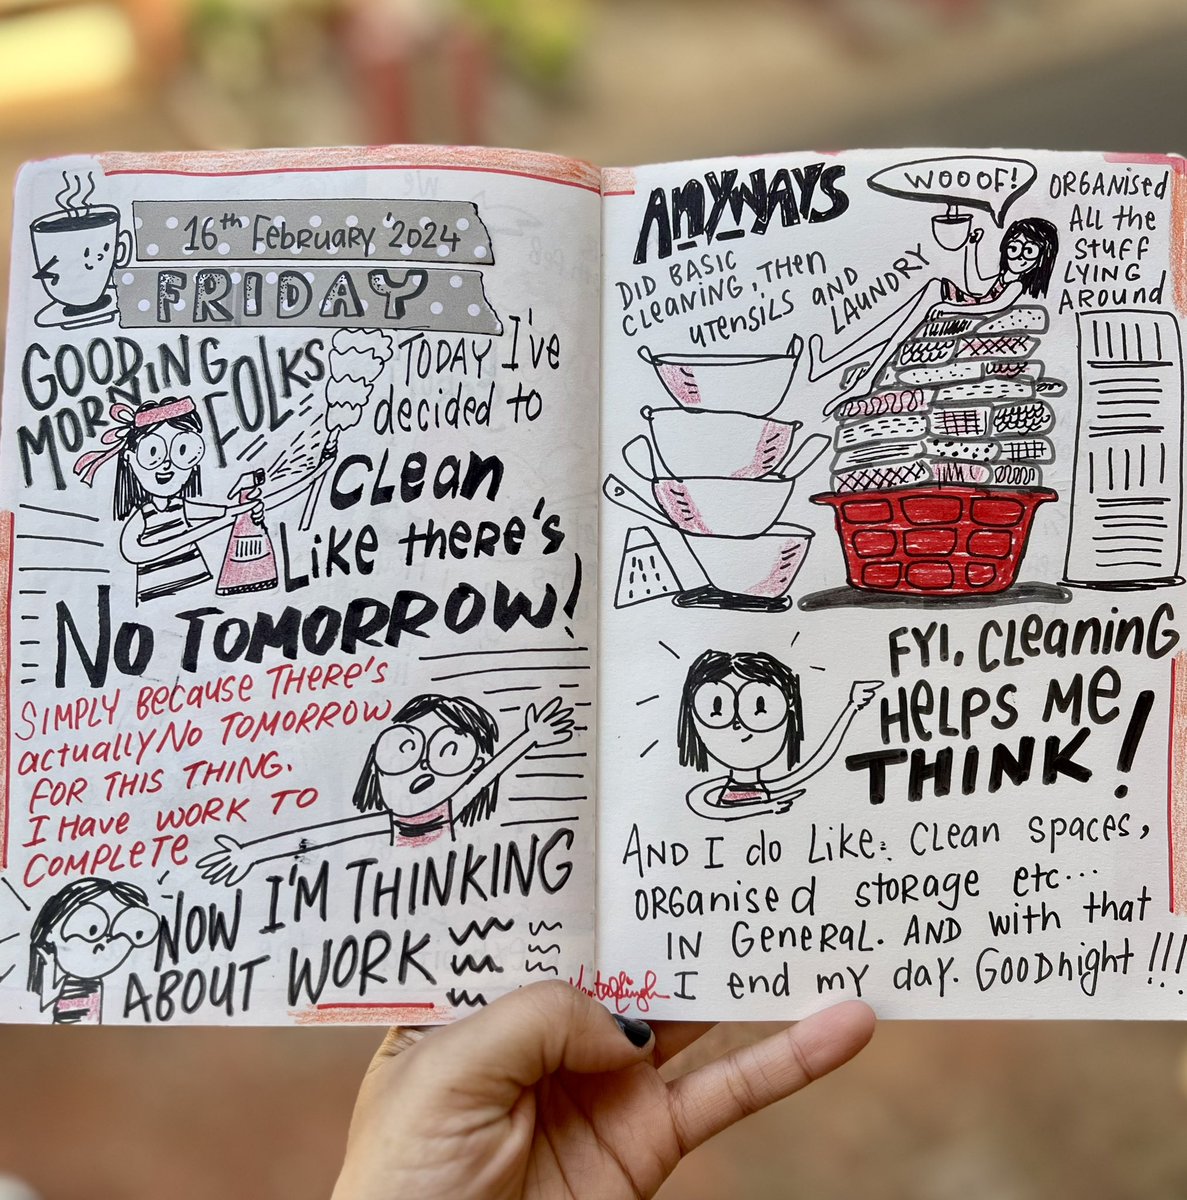 16th February '2024
FRIDAY
GOOD MORNING FOLKS
TODAY I've
decided to
Clean
Like there's
No TOMORROW!
SIMPLY Because THERE'S
actually NO TOMORROW
FOR THIS THING.
I Have WORK TO
COMPLETE
NOW I'M THINKING
ABOUT WORK
ANYWAYS
DID BASIC
CLEANING, THEN
UTENSILS AND
LAUNDRY
WOOOF!
ORGANISED
All the
STUFF
LYING
AROUND
FYI, Cleaning
HELPS Me
THINK!
AND I do Like: Clean spaces,
ORGanised storage etc...
IN General. AND with that
I end my day. Goodnight !!!